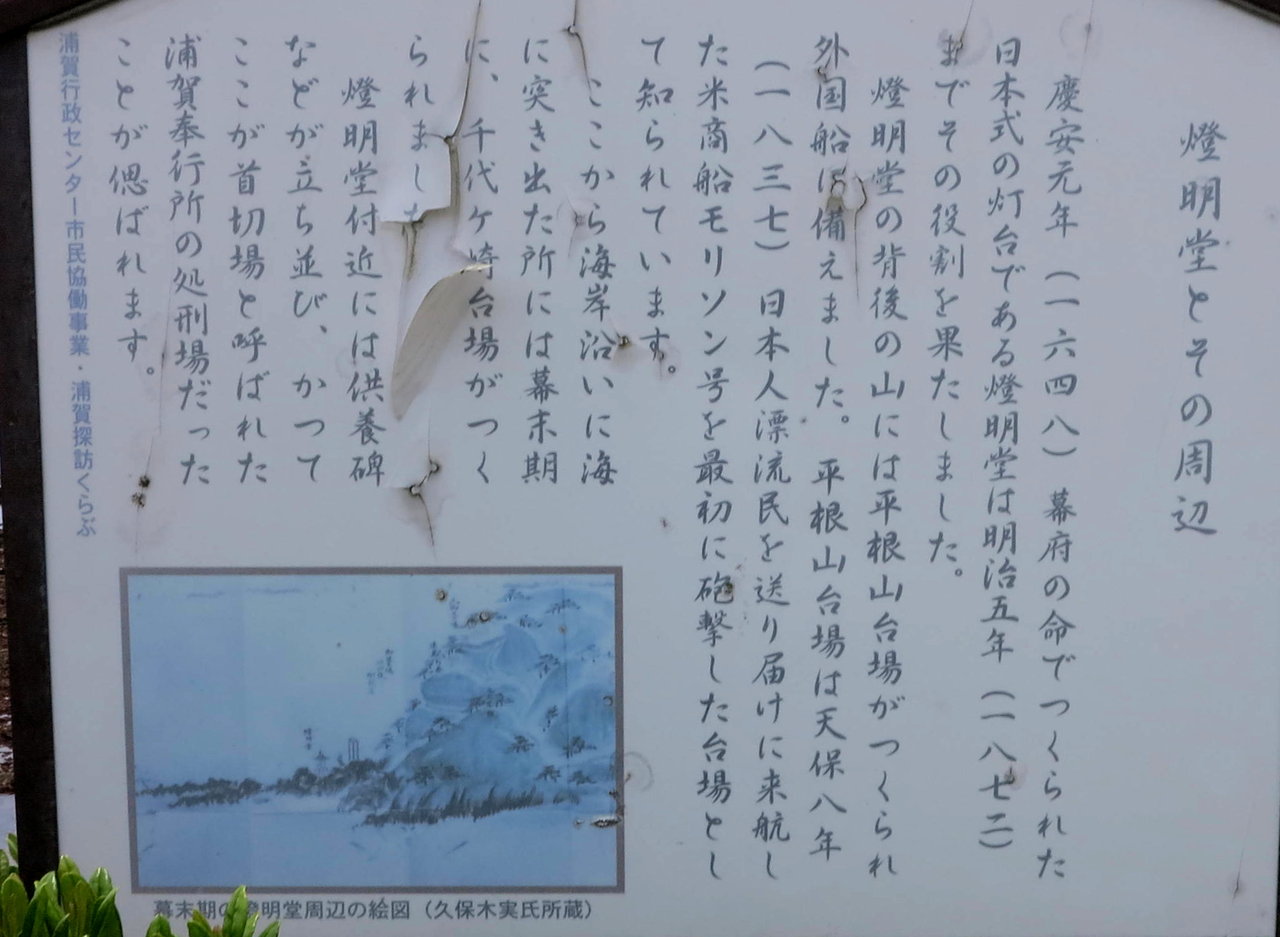 燈明堂とその周辺
慶安元年（一六四八）幕府の命でつくられた
日本式の灯台である燈明堂は明治五年（一八七二）
までその役割を果たしました。
燈明堂の背後の山には平根山台場がつくられ
外国船に備えました。平根山台場は天保八年
（一八三七）日本人漂流民を送り届けに来航し
た米商船モリソン号を最初に砲撃した台場とし
て知られています。
ここから海岸沿いに海
に突き出た所には幕末期
に、千代ケ崎台場がつく
られました
燈明堂付近には供養碑
などが立ち並び、かつて
ここが首切場と呼ばれた
浦賀奉行所の処刑場だった
ことが偲ばれます。
浦賀行政センター市民協働事業・浦賀探訪くらぶ
幕末期の燈明堂周辺の絵図（久保木実氏所蔵）